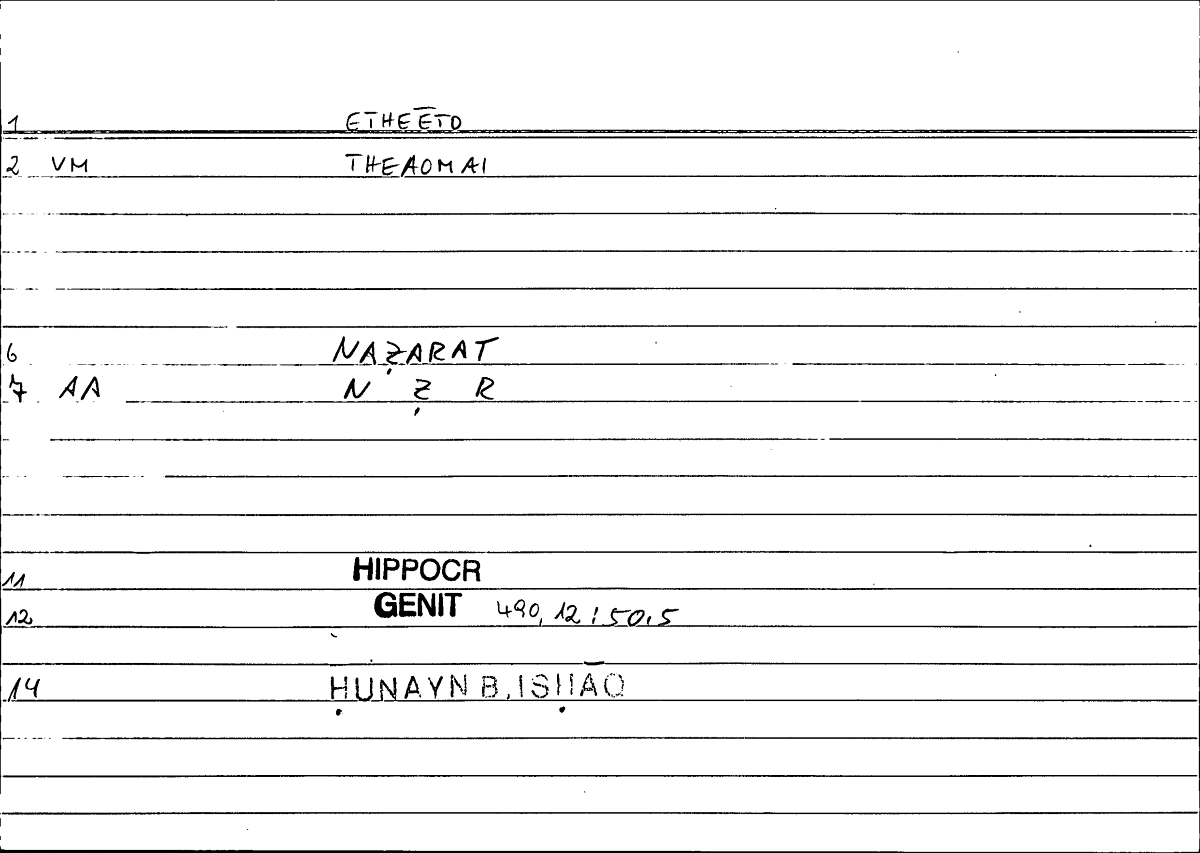 1 ETHEE̅TO
2 VM THEAOMAI
6 NAẒARAT
7 AA N Ẓ R
11 HIPPOCR
12 GENIT 490,12:50.5
14 ḤUNAYN B.ISḤĀQ